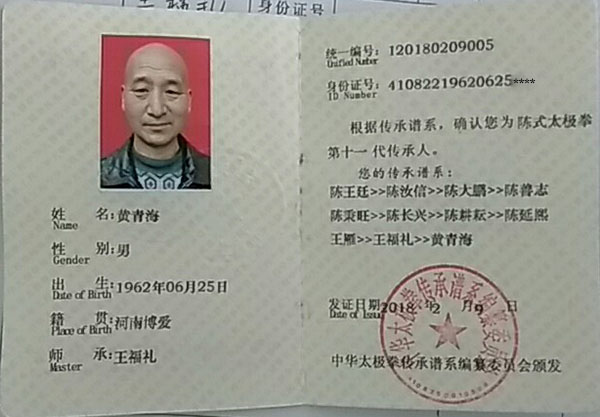 身份证号
姓 名:黄青海
Name
性 别:男
Gender
出 生:1962年06月25日
Date of Birth
籍 贯:河南博爱
Place of Birth
师 承:王福礼
Master
统一编号:120180209005
Unified Number
身份证号:41082219620625****
ID Number
根据传承谱系,确认您为陈式太极拳
第十一代传承人。
您的传承谱系:
陈王廷>>陈汝信>>陈大鹏>>陈善志
陈秉旺>>陈长兴>>陈耕耘>>陈延熙
王雁>>王福礼>>黄青海
发证日期 2018 年 2 月 9 日
Date of Issue
中华太极拳传承谱系编纂委员会颁发